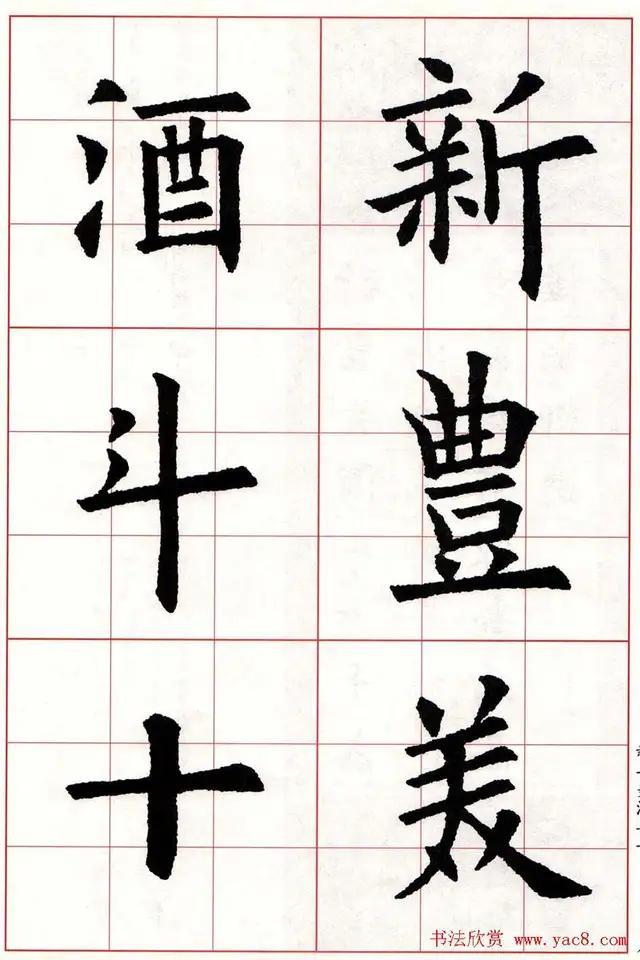 新豐美
酒斗十
书法欣赏 www.yac8.com